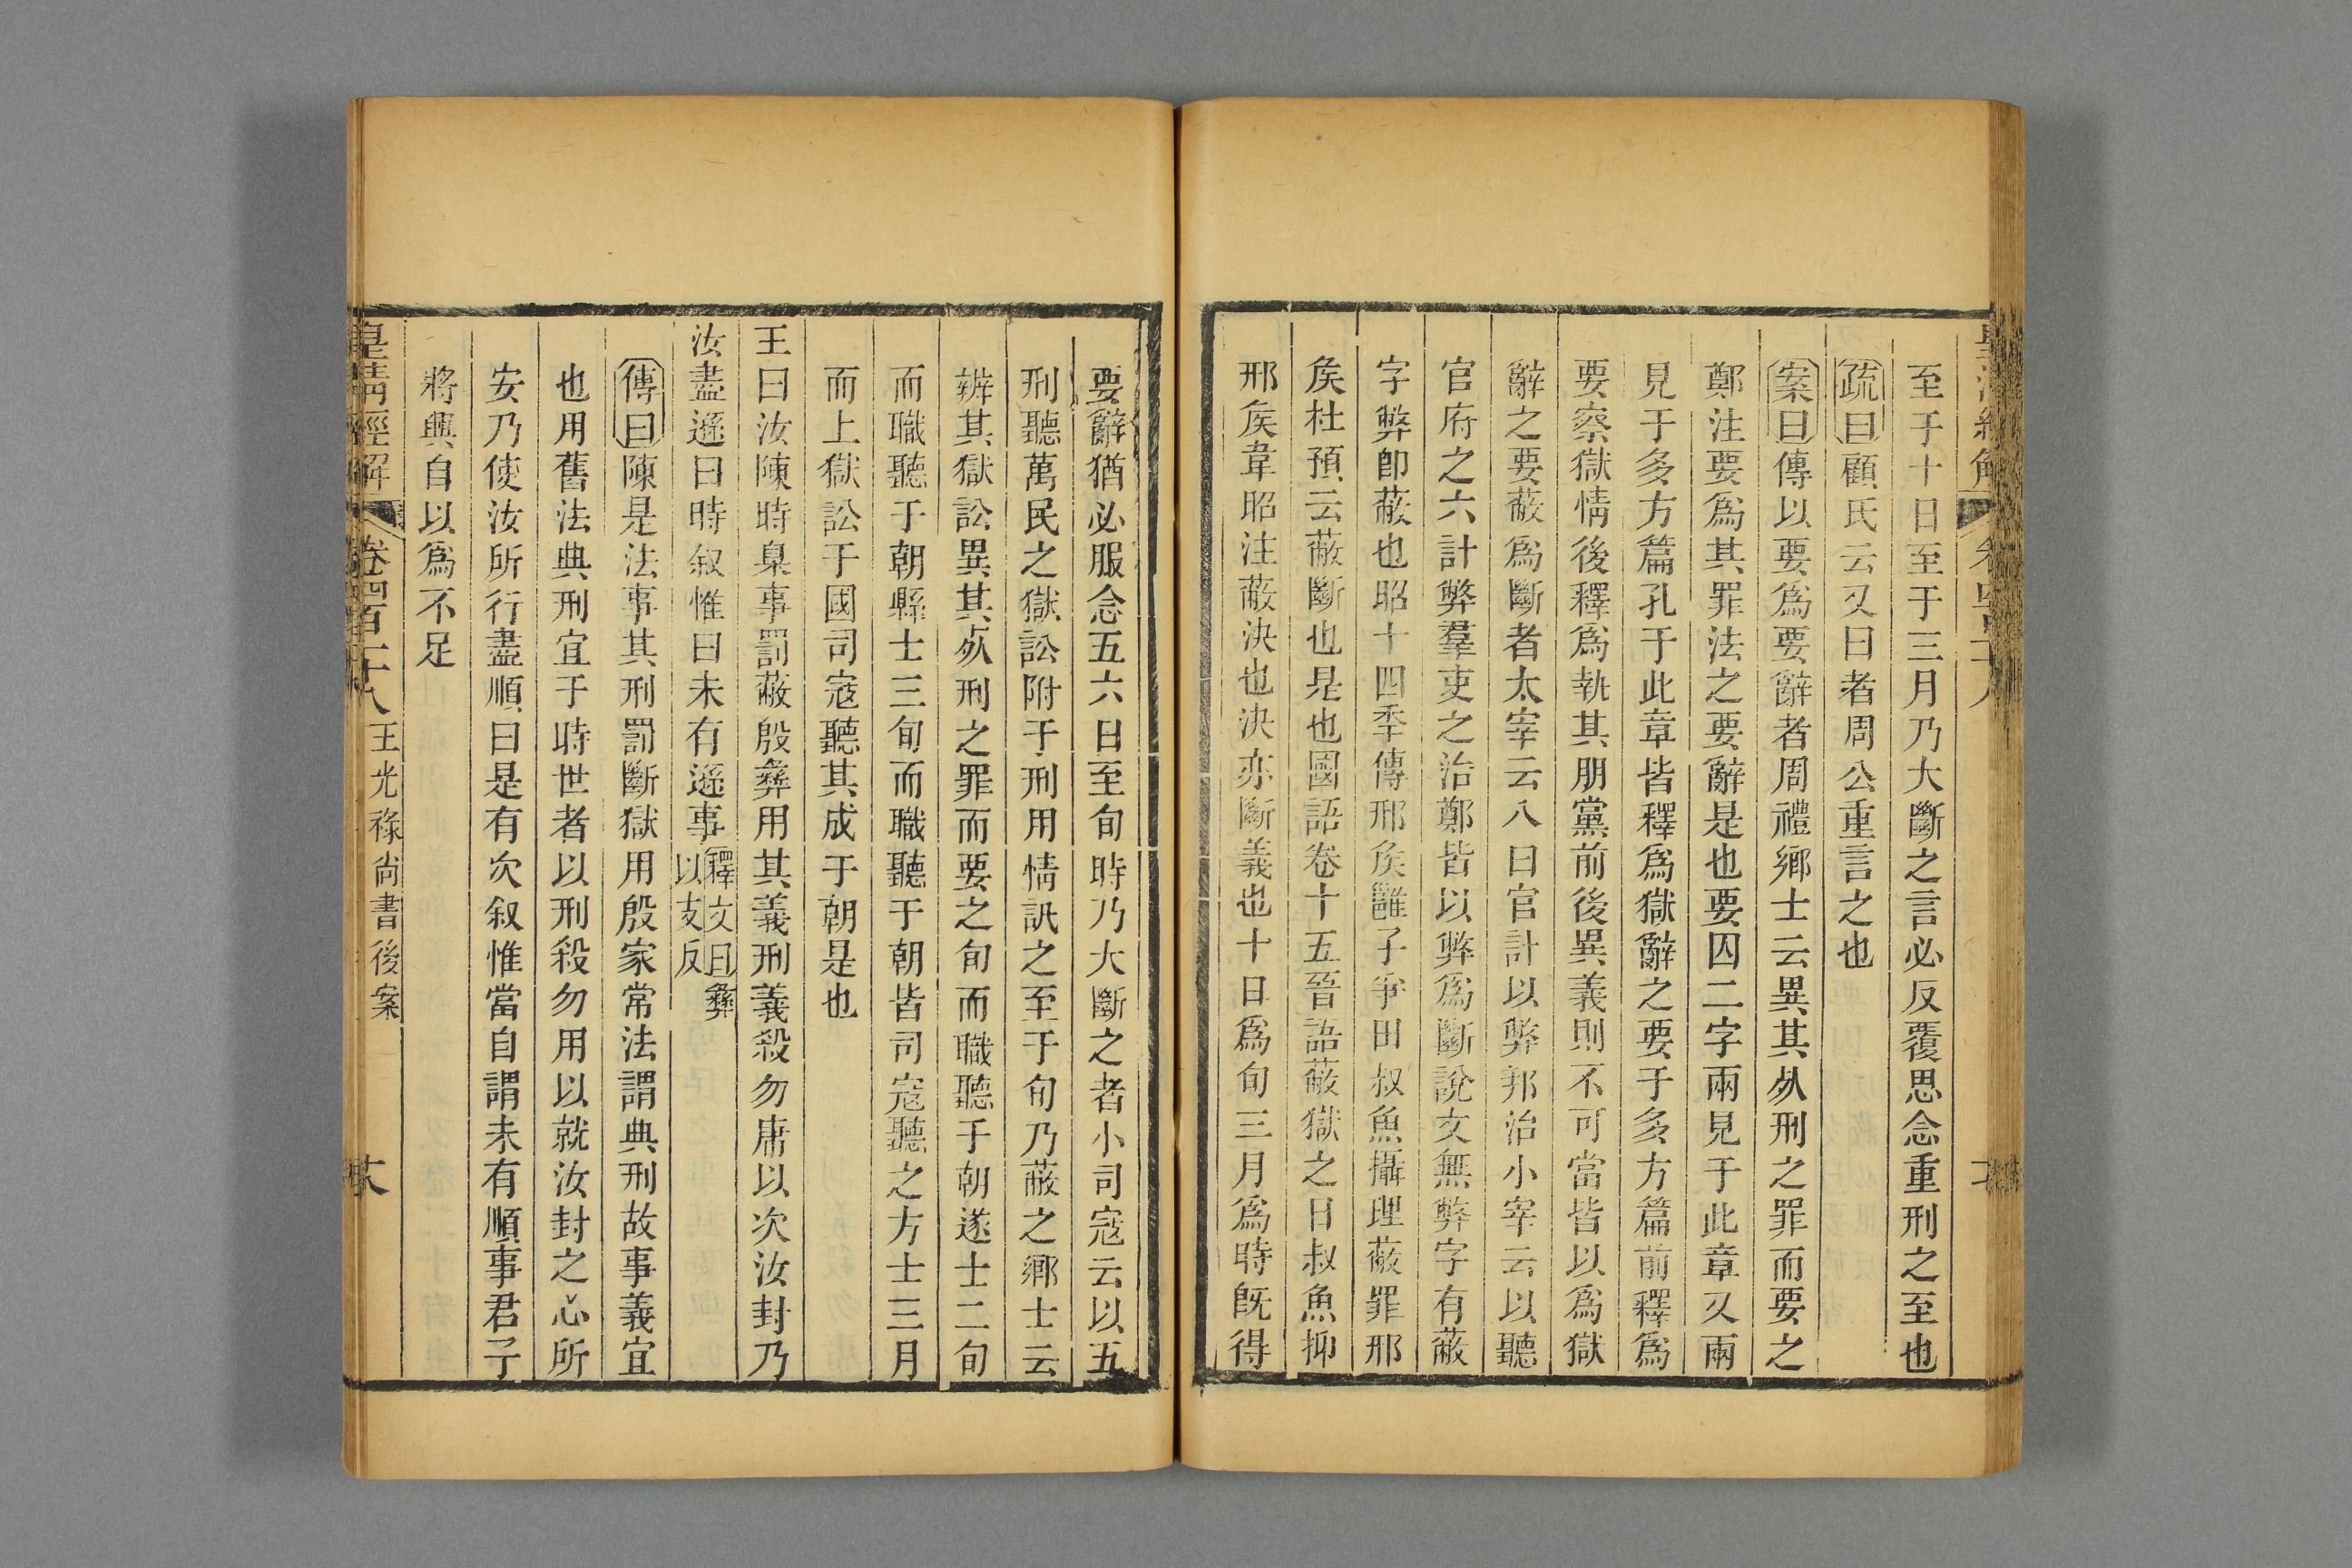 至于十日至于三月乃大斷之言必反覆思念重刑之至也
疏曰顧氏云又曰者周公重言之也
案曰傳以要爲要辭者周禮鄉士云異其死刑之罪而要之
鄭注要爲其罪法之要辭是也要囚二字兩見于此章又兩
見于多方篇孔于此章皆釋爲獄辭之要于多方篇前釋爲
要察獄情後釋爲執其朋黨前後異義則不可當皆以爲獄
辭之要蔽爲斷者太宰云八曰官計以弊邦治小宰云以聽
官府之六計弊羣吏之治鄭皆以弊爲斷說文無弊字有蔽
字弊卽蔽也昭十四季傳邢矦雝子爭田叔魚攝理蔽罪邢
矦杜預云蔽斷也是也國語卷十五晉語蔽獄之日叔魚抑
邢矦韋昭注蔽決也決亦斷義也十日爲旬三月爲時旣得
要辭猶必服念五六日至旬時乃大斷之者小司寇云以五
刑聽萬民之獄訟附于刑用情訊之至于旬乃蔽之鄉士云
辨其獄訟異其死刑之罪而要之旬而職聽于朝遂士二旬
而職聽于朝縣士三旬而職聽于朝皆司寇聽之方士三月
而上獄訟于國司寇聽其成于朝是也
王曰汝陳時臬事罰蔽殷彝用其義刑義殺勿庸以次汝封乃
汝盡遜曰時叙惟曰未有遜事釋文曰彝以支反
傳曰陳是法事其刑罰斷獄用殷家常法謂典刑故事義宜
也用舊法典刑宜于時世者以刑殺勿用以就汝封之心所
安乃使汝所行盡順曰是有次叙惟當自謂未有順事君子
將興自以爲不足
皇清經解 卷四百二十八 王光祿尚書後案